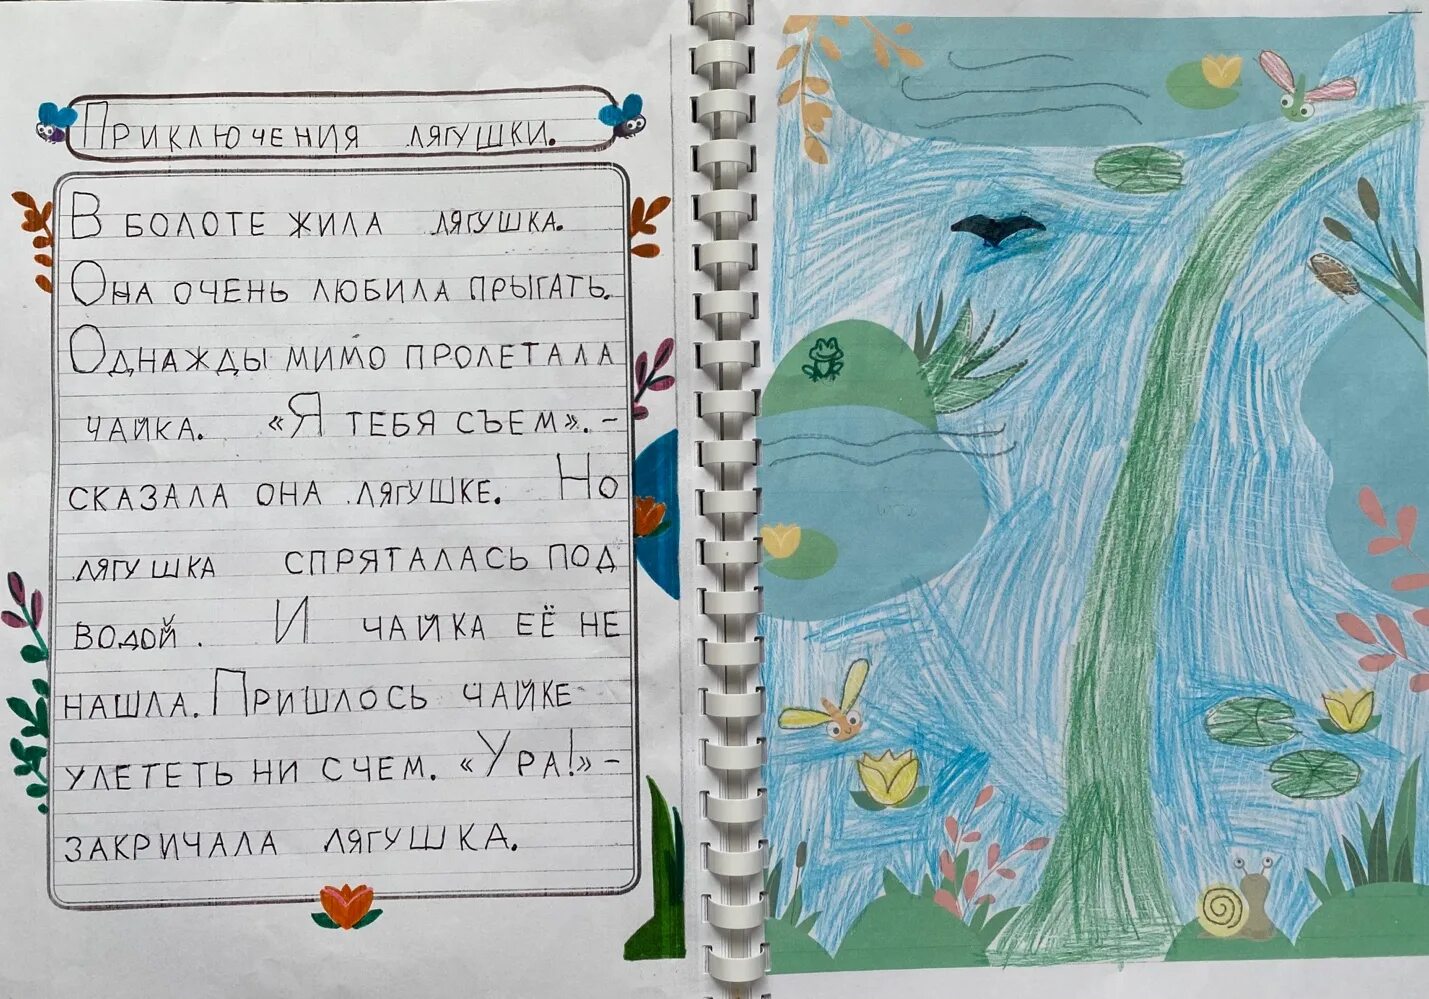 Приключения лягушки.
В болоте жила лягушка.
Она очень любила прыгать.
Однажды мимо пролетала
чайка. «Я тебя съем». –
сказала она лягушке. Но
лягушка спряталась под
водой. И чайка её не
нашла. Пришлось чайке
улететь ни с чем. «Ура!» –
закричала лягушка.